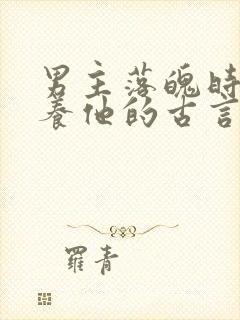 男主落魄时
养他的古言
羅青